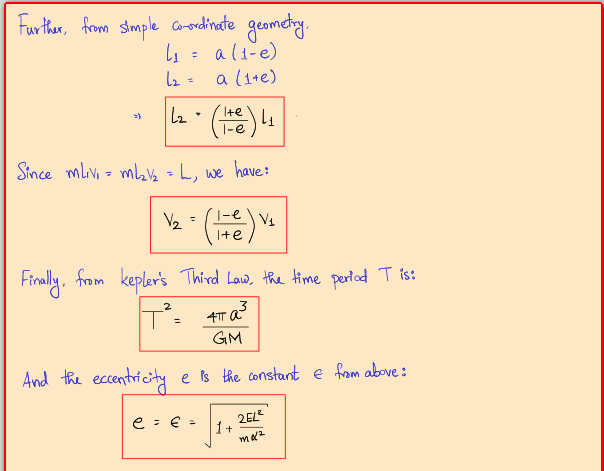 Further, from simple co-ordinate geometry.
L₁ = a (1-e)
L₂ = a (1+e)
⇒ L₂ = ((1+e)/(1-e)) L₁
Since mL₁V₁ = mL₂V₂ = L, we have:
V₂ = ((1-e)/(1+e)) V₁
Finally, from kepler's Third Law, the time period T is:
T² = 4π a³ / GM
And the eccentricity e is the constant ϵ from above:
e = ϵ = √(1 + 2EL²/mα²)